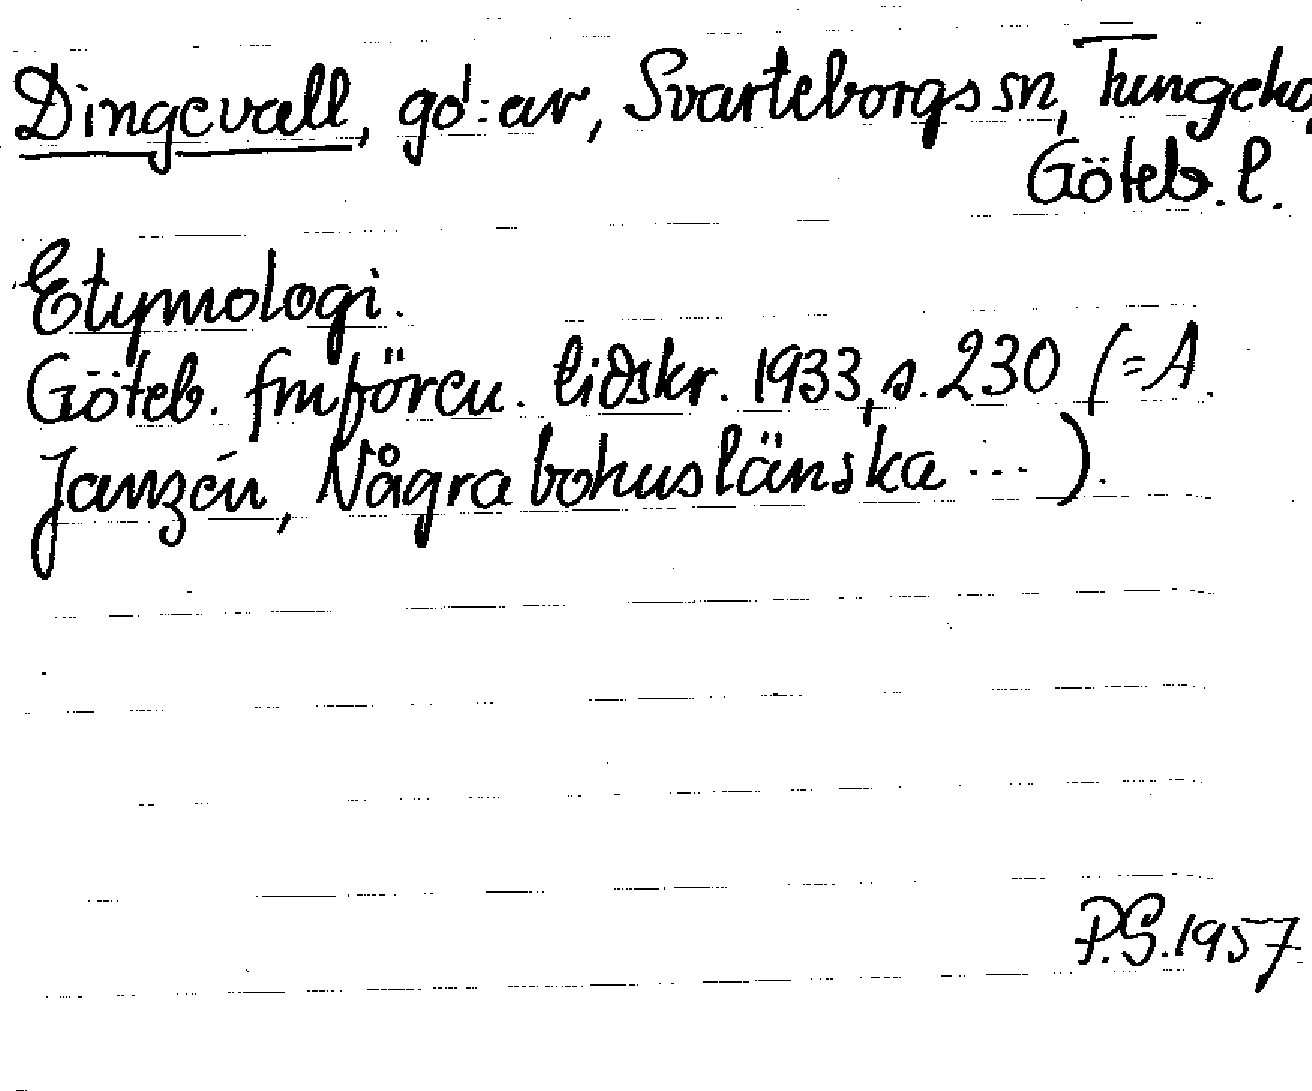 Dingevall, gd:ar, Svarteborgs sn, Tungehd,
Göteb. l.
Etymologi.
Göteb. fmfören. tidskr. 1933, s. 230 (= A.
Janzén, Några bohuslänska ...).
P.S. 1957